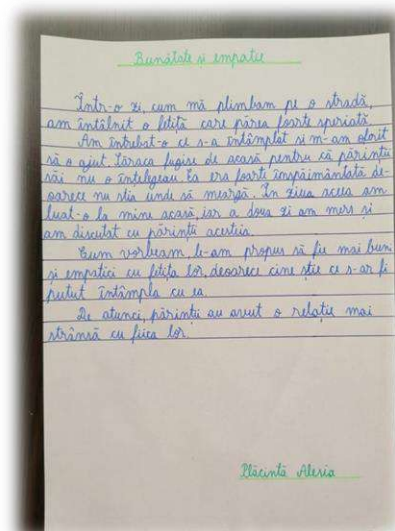 Bunătate și empatie
Într-o zi, cum mă plimbam pe o stradă,
am întâlnit o fetiță care părea foarte speriată.
Am întrebat-o ce s-a întâmplat si m-am oferit
să o ajut. Săraca fugise de acasă pentru că părinții
săi nu o înțelegeau. Ea era foarte înspăimântată de-
oarece nu știa unde să meargă. În ziua aceea am
luat-o la mine acasă, iar a doua zi am mers și
am discutat cu părinții acesteia.
Cum vorbeam, le-am propus să fie mai buni
și empatici cu fetița lor, deoarece cine știe ce s-ar fi
putut întâmpla cu ea.
De atunci, părinții au avut o relație mai
strânsă cu fiica lor.
Plăcintă Alesia